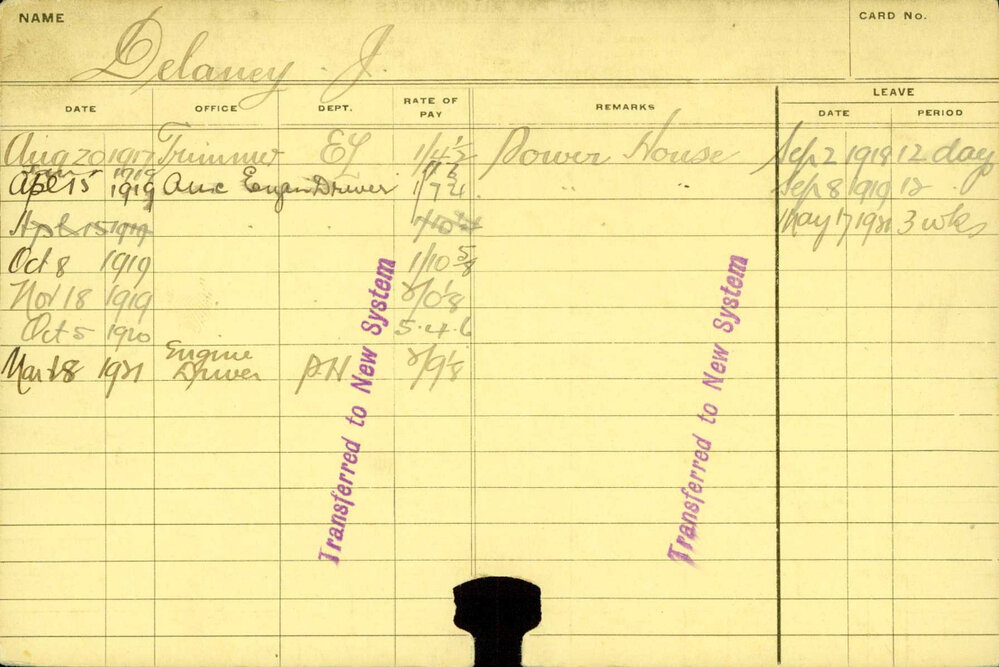 NAME
CARD No.
Delaney J.
LEAVE
DATE OFFICE DEPT. RATE OF PAY REMARKS DATE PERIOD
Aug 20 1917 Trimmer EL 1/4½ Power House Sep 2 1918 12 day
Apl 15 1919 Driver 1/7 " " Sep 8 1919 12
Apl 15 1919 May 17 1921 3 wks
Oct 8 1919 1/10 5/8
Nov 18 1919 2/0⅛
Oct 5 1920 5.4.6
Mar 18 1921 Engine Driver P.H 2/9⅛
Transferred to New System
Transferred to New System